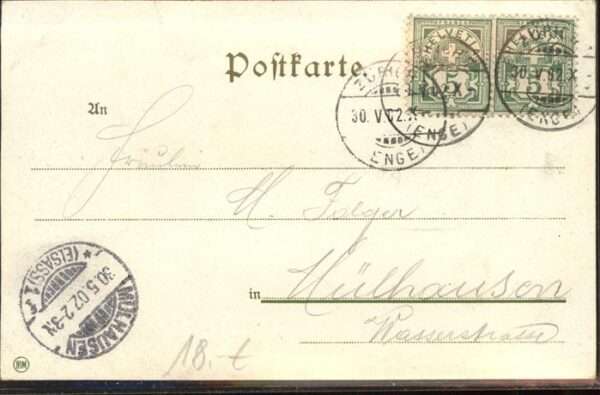 HELVETIA
5 5
Postkarte.
ZÜRICH
30.V.02.X
(ENGE)
An
Fräulein
M. Folger
in Mülhausen
Wasserstrasse
MÜLHAUSEN
30.5.02.2-3N
*(ELSASS)1
18.-